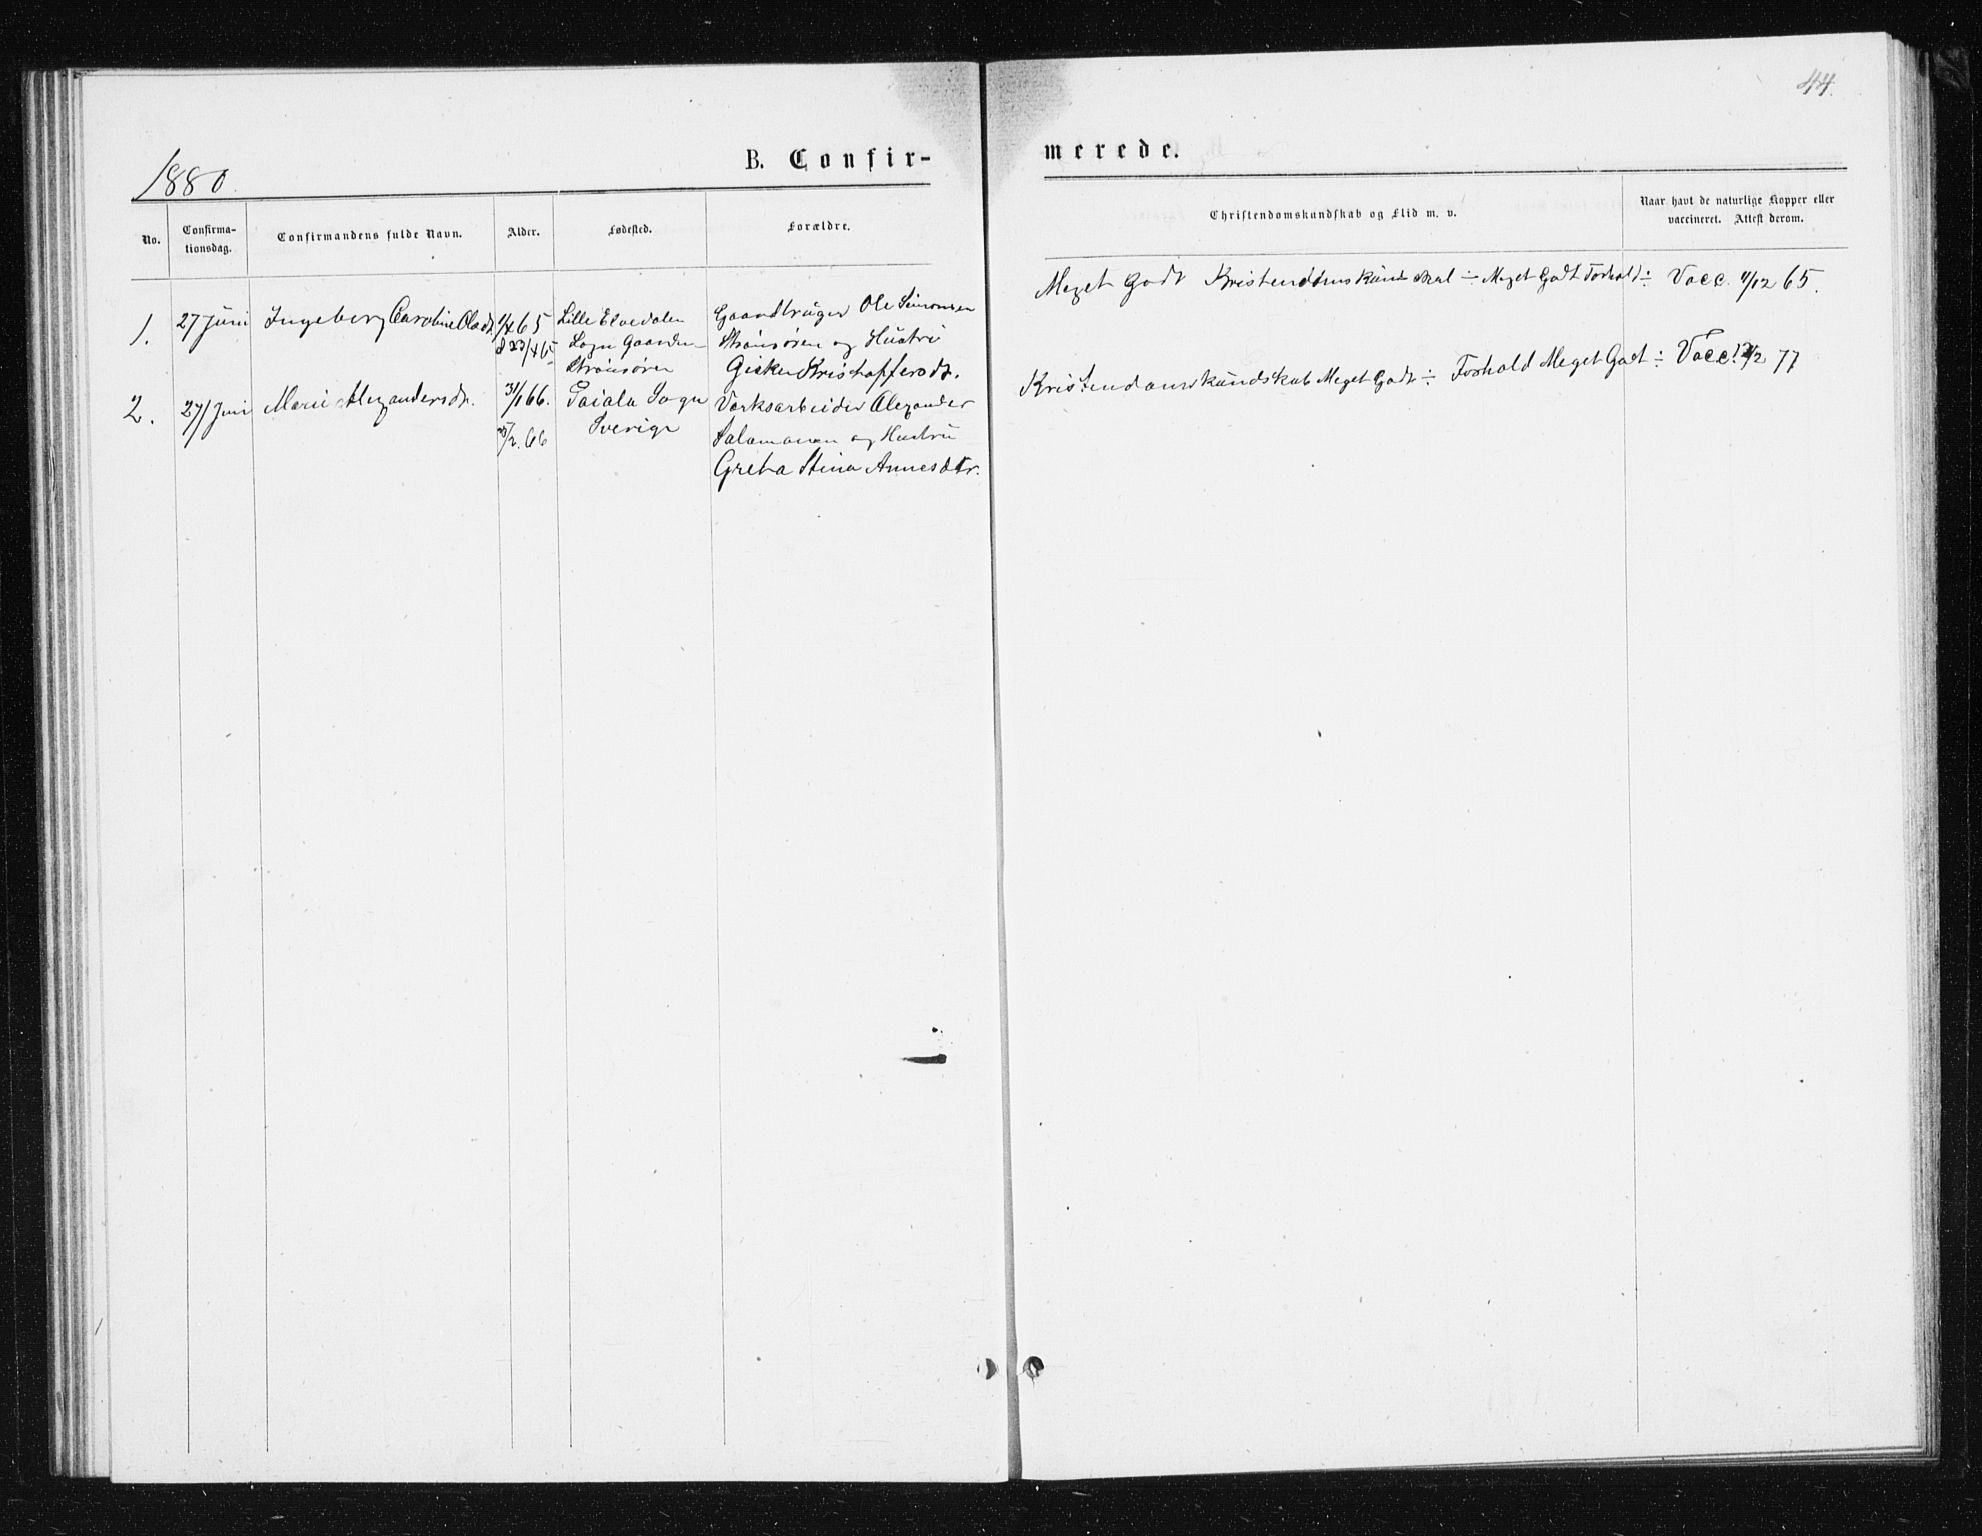 44.
1880.
B. Confir-
merede.
No.
Confirma-
tionsdag.
Confirmandens fulde Navn.
Alder.
Fødested.
Forældre.
Christendomskundskab og Flid m. v.
Naar havt de naturlige Kopper eller
vaccineret. Attest derom.
1.
27 Juni
Ingeberg Caroline Olsdt.
1/4 65
d 23/4 65
Lille Elvedalen
Sogn Gaarden
Strömsören
Gaardbruger Ole Simonsen
Strömsören og Hustru
Gisken Kristoffersdt.
Meget Godt Kristendomskundskab ÷ Meget Godt Forhold ÷
Vacc. 4/12 65.
2.
27/ Juni
Marie Alexandersdt.
31/1 66.
/2. 66
Paiala Sogn
Sverige
Værksarbeider Alexander
Salamonsen og Hustru
Greta Stina Annesdtr.
Kristendomskundskab Meget Godt ÷ Forhold Meget Godt ÷
Vacc. /2 77